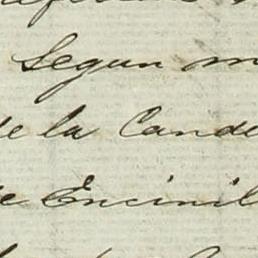 Segun m
de la Cande
de Encinil